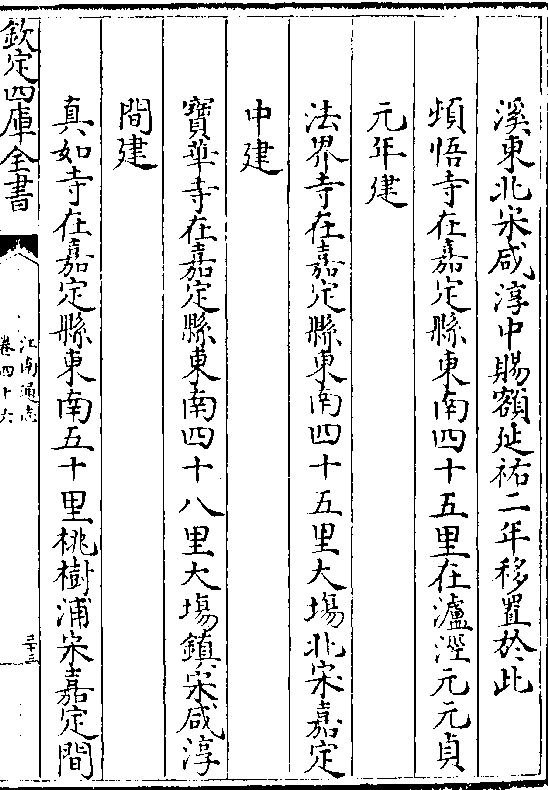 溪東北宋咸淳中賜額延祐二年移置於此
頻悟寺在嘉定縣東南四十五里在瀘涇元元貞
元年建
法界寺在嘉定縣東南四十五里大場北宋嘉定
中建
寶華寺在嘉定縣東南四十八里大場鎮宋咸淳
間建
真如寺在嘉定縣東南五十里桃樹浦宋嘉定間
欽定四庫全書
江南通志
卷四十六
三十三